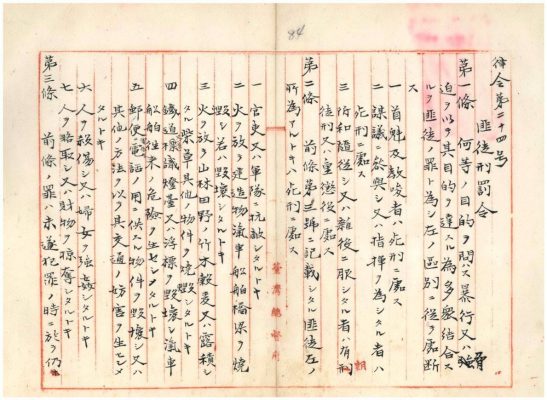 84
律令第二十四号
匪徒刑罰令
第一條 何等ノ目的ヲ問ハス暴行又ハ脅
迫ヲ以テ其目的ヲ達スル為多衆結合ス
ルヲ匪徒ノ罪ト為シ左ノ區別ニ從テ處断
ス
一 首魁及教唆者ハ死刑ニ處ス
二 謀議ニ參與シ又ハ指揮ヲ為シタル者ハ
死刑ニ處ス
三 附和隨從シ又ハ雜役ニ服シタル者ハ有期
徒刑又ハ重懲役ニ處ス
第二條 前條第三號ニ記載シタル匪徒左ノ
所為アルトキハ死刑ニ處ス
一 官吏又ハ軍隊ニ抗敵シタルトキ
二 火ヲ放チ建造物滊車船舶橋梁ヲ燒
毀シ若ハ毀壊シタルトキ
三 火ヲ放チ山林田野ノ竹木穀麦又ハ露積シ
タル柴草其他ノ物件ヲ燒毀シタルトキ
四 鐵道標識燈臺又ハ浮標ヲ毀壊シ滊車
船舶往来ノ危險ヲ生セシメタルトキ
五 郵便電話ノ用ニ供スル物件ヲ毀壊シ又ハ
其他ノ方法ヲ以テ其交通ノ妨害ヲ生セシメ
タルトキ
六 人ヲ殺傷シ又ハ婦女ヲ強姦シタルトキ
七 人ヲ略取シ又ハ財物ヲ掠奪シタルトキ
第三條 前條ノ罪ハ未遂犯罪ノ時ニ於テ仍
臺灣總督府